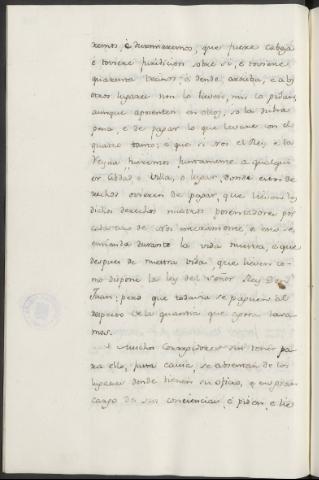 remos, é durmieremos, que fuere cabeza
é toviere jurisdicion sobre si, é toviere
quarenta vecinos ó dende arriba, é á los
otros lugares non la lieven, nin la pidan,
aunque aposenten en ellos, so la dicha
pena, é de pagar lo que levaren con el
quatro tanto; é que si Nos el Rey, é la
Reyna fueremos juntamente á qualqui-
er Cibdad ó Villa, ó lugar, donde estos de-
rechos ovieren de pagar, que lleven los
dichos derechos nuestros posentadores por
cada uno de Nos enteramente, é esto se
entienda durante la vida nuestra, é que
despues de nuestra vida que lleven co-
mo dispone la ley del Señor Rey Dn.
Juan; pero que todavia se paguen al
respecto de la quantia que agora tasa-
mos.
Muchos Corregidores sin tener pa-
ra ello, justa causa, se absentan de los
lugares donde tienen su oficio, é en gran
cargo de sus conciencias, é piden, é lie